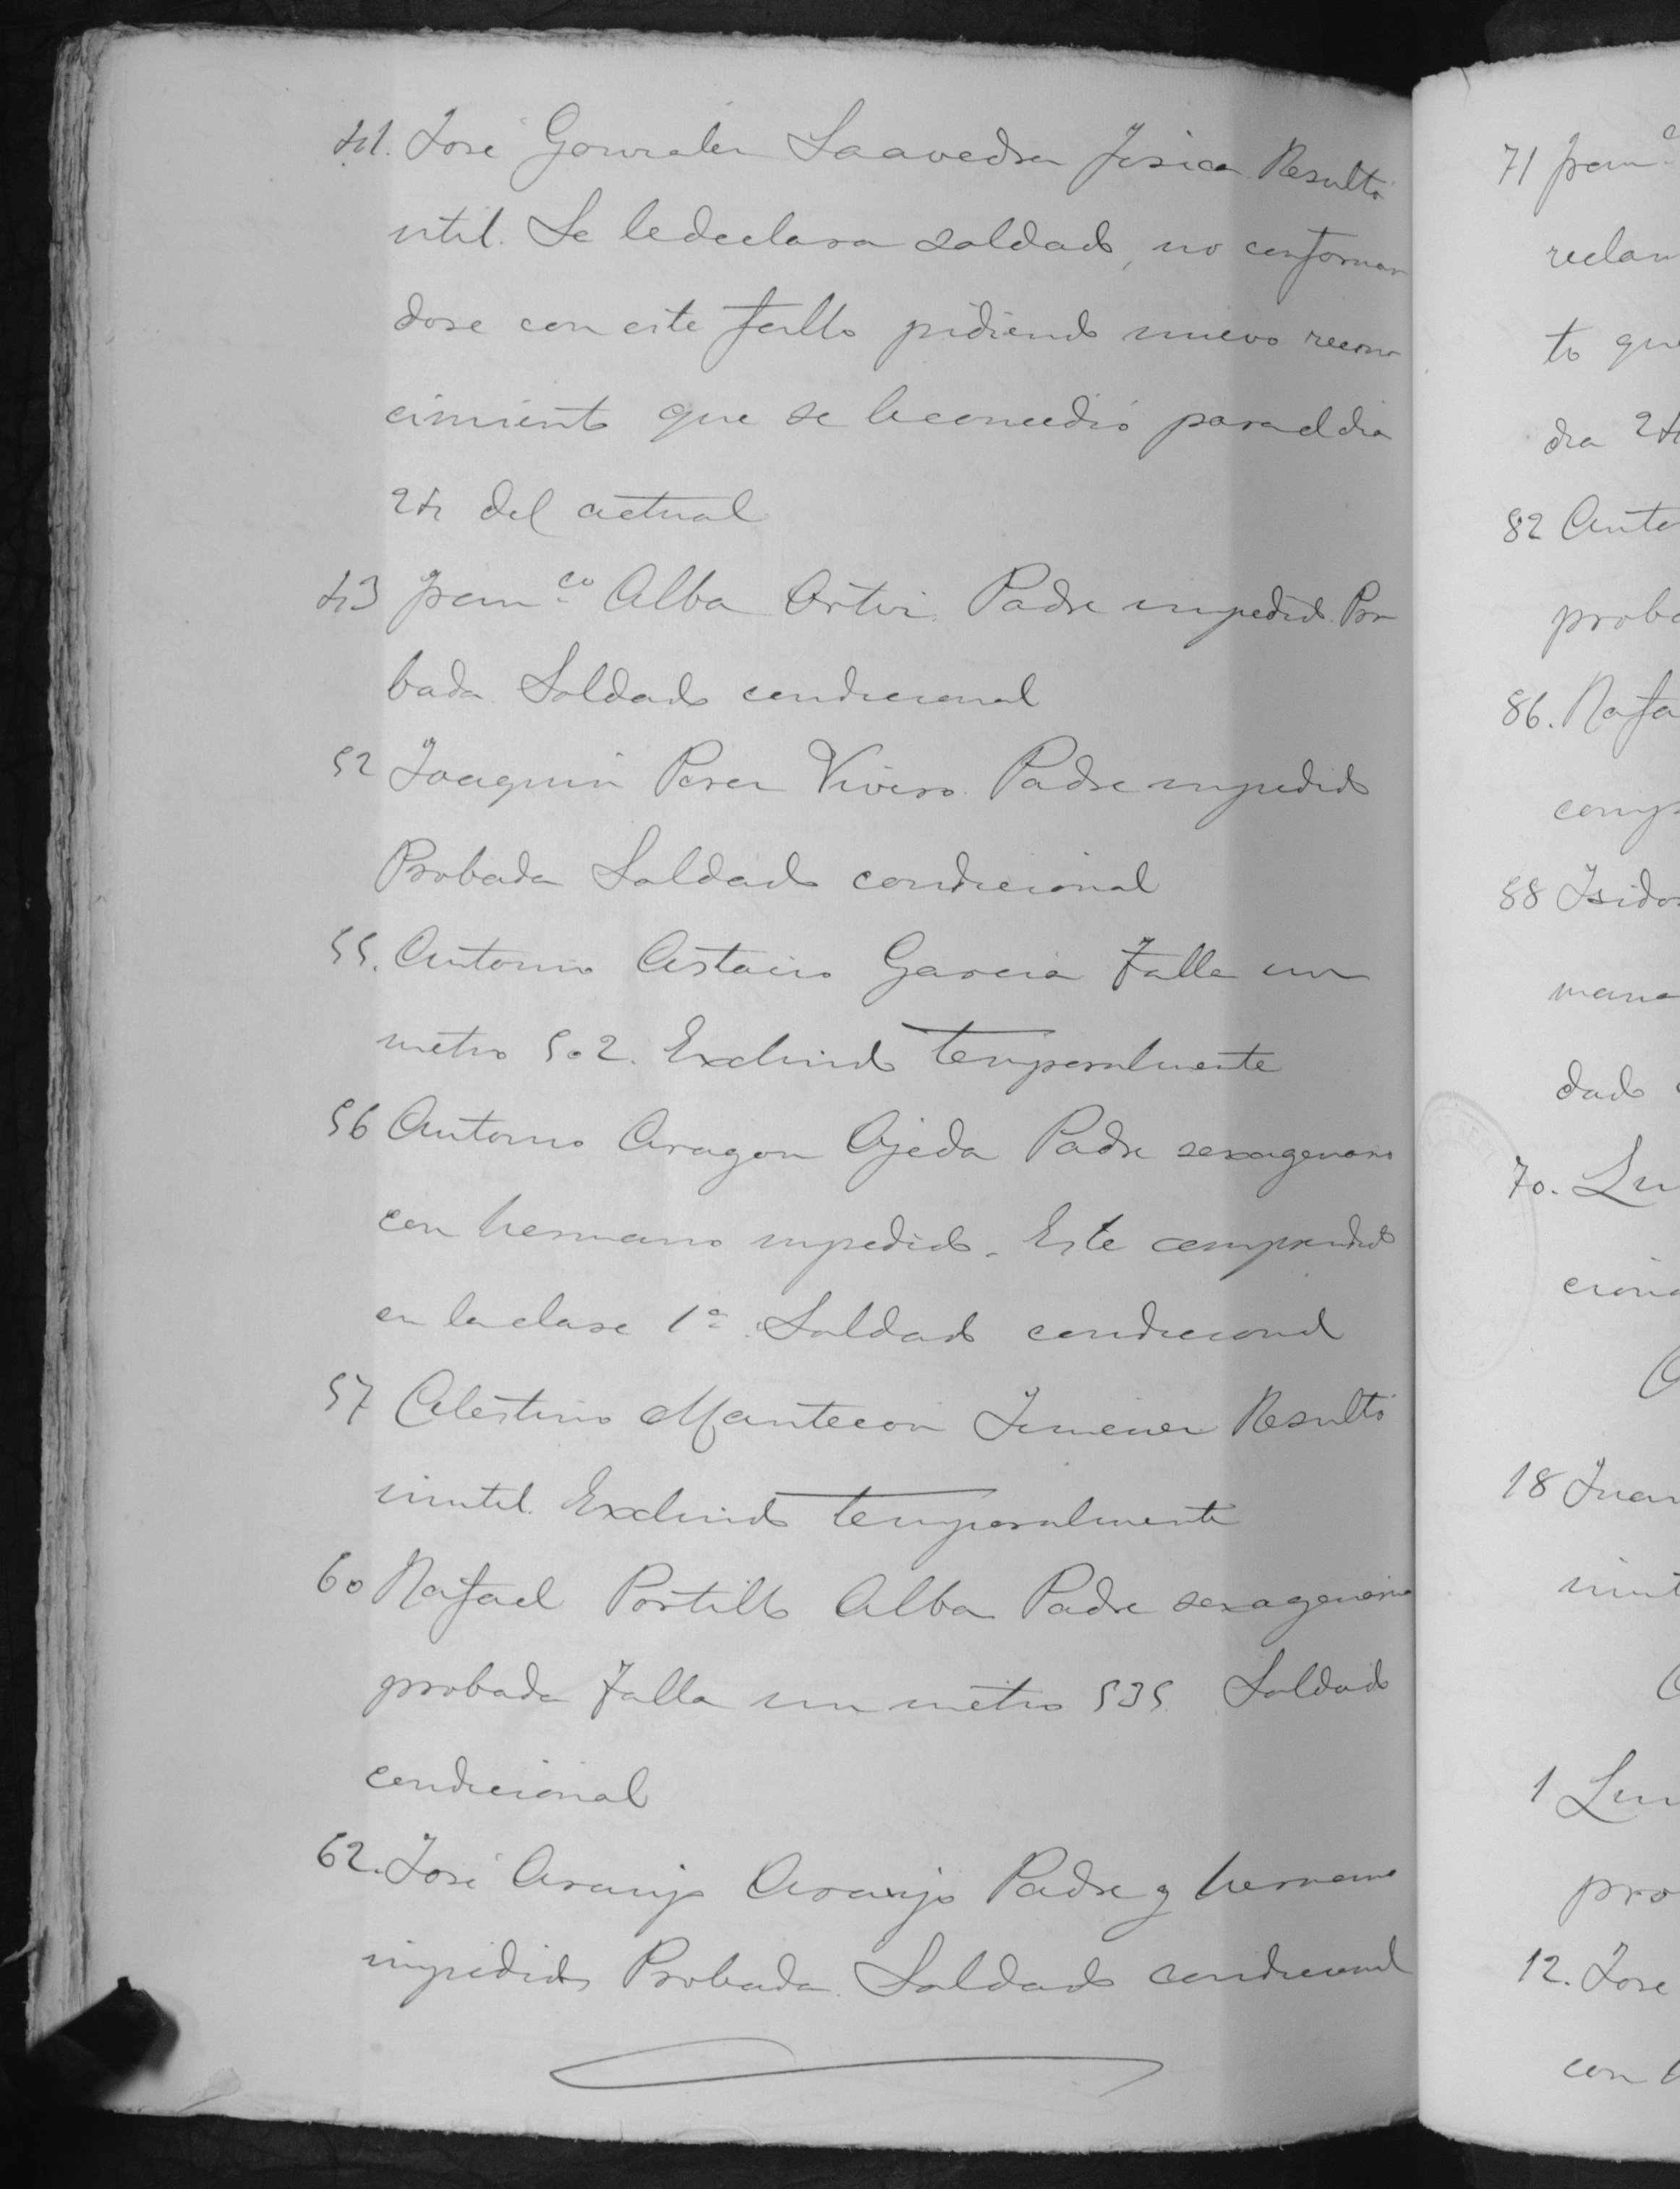 41. José Gonzalez Saavedra Fisica Resultó
util. Se le declara soldado, no conforman
dose con este fallo pidiendo nuevo recono
cimiento que se le concedió para el dia
24 del actual
43 Franco Alba Ortiz. Padre impedido. Pro
bada. Soldado condicional
52 Joaquin Perez Vivero. Padre impedido
Probada Soldado condicional
55. Antonio Astacio Garcia Talla un
metro 502. Excluido temporalmente
56 Antonio Aragon Ojeda Padre sexagenario
con hermano impedido. Este comprendido
en la clase 1ª. Soldado condicional
57 Celestino Mantecón Jimenez Resultó
inutil. Excluido temporalmente
60 Rafael Portillo Alba Padre sexagenario
probada Talla un metro 535. Soldado
condicional
62. José Araujo Araujo Padre y hermano
impedidos Probada. Soldado condicional
71 Franc
reclam
to que
dia 24
82 Anto
proba
86. Rafa
comp
88 Isido
mano
dado
70. Lu
ciona
18 Juan
inut
1 Lui
pro
12. Jose
con